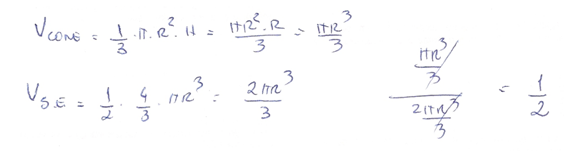 V_CONE = 1/3 · π · R² · H = πR² · R / 3 = πR³ / 3
V_S.E = 1/2 · 4/3 · πR³ = 2πR³ / 3
(πR³ / 3) / (2πR³ / 3) = 1/2